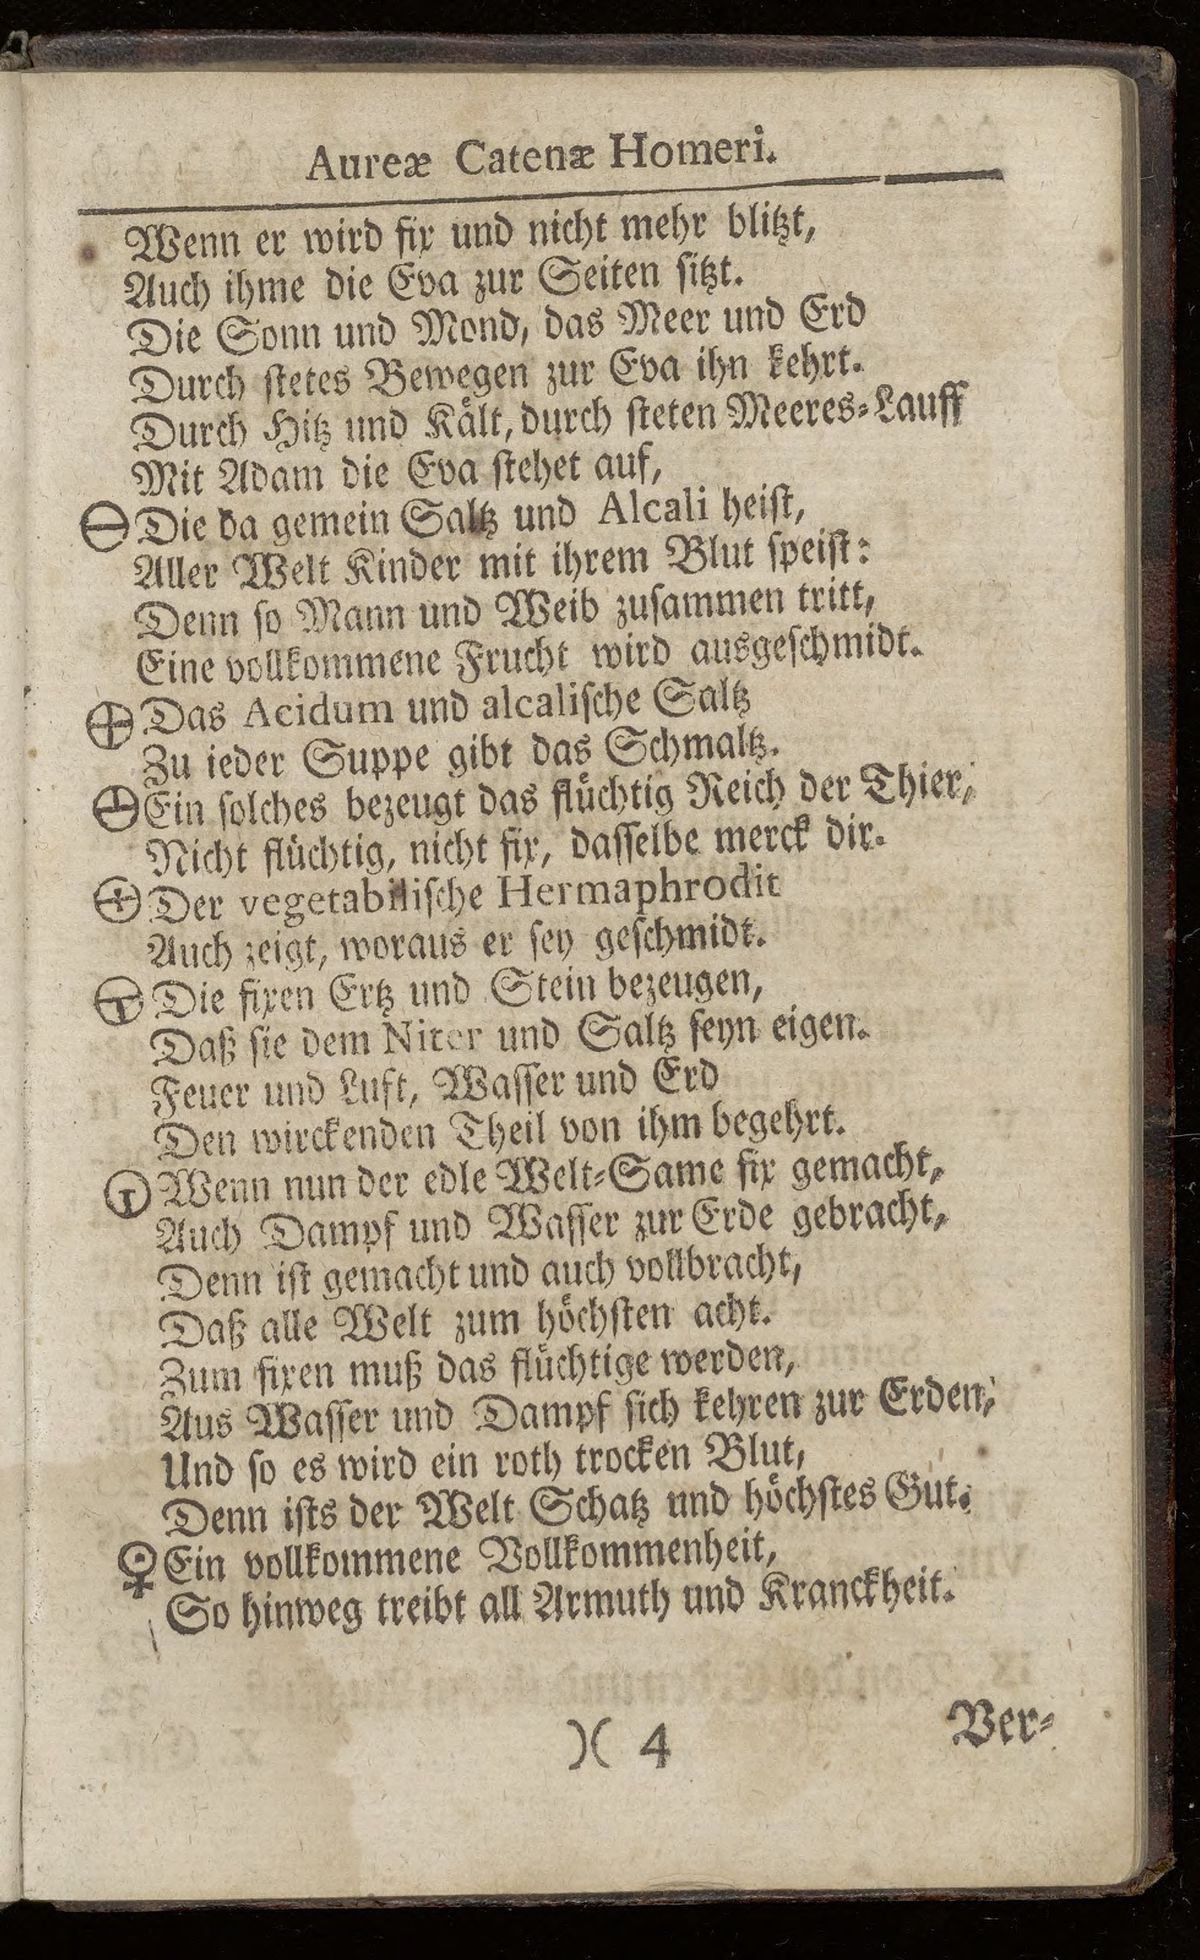 Aureæ Catenæ Homeri.
Wenn er wird fix und nicht mehr blitzt,
Auch ihme die Eva zur Seiten sitzt.
Die Sonn und Mond, das Meer und Erd
Durch stetes Bewegen zur Eva ihn kehrt.
Durch Hitz und Kält, durch steten Meeres-Lauff
Mit Adam die Eva stehet auf,
Die da gemein Saltz und Alcali heist,
Aller Welt Kinder mit ihrem Blut speist:
Denn so Mann und Weib zusammen tritt,
Eine vollkommene Frucht wird ausgeschmidt.
Das Acidum und alcalische Saltz
Zu ieder Suppe gibt das Schmaltz.
Ein solches bezeugt das flüchtig Reich der Thier,
Nicht flüchtig, nicht fix, dasselbe merck dir.
Der vegetabilische Hermaphrodit
Auch zeigt, woraus er sey geschmidt.
Die fixen Ertz und Stein bezeugen,
Daß sie dem Niter und Saltz seyn eigen.
Feuer und Luft, Wasser und Erd
Den wirckenden Theil von ihm begehrt.
Wenn nun der edle Welt-Same fix gemacht,
Auch Dampf und Wasser zur Erde gebracht,
Denn ist gemacht und auch vollbracht,
Daß alle Welt zum höchsten acht.
Zum fixen muß das flüchtige werden,
Aus Wasser und Dampf sich kehren zur Erden,
Und so es wird ein roth trocken Blut,
Denn ists der Welt Schatz und höchstes Gut.
Ein vollkommene Vollkommenheit,
So hinweg treibt all Armuth und Kranckheit.
)( 4
Ver-